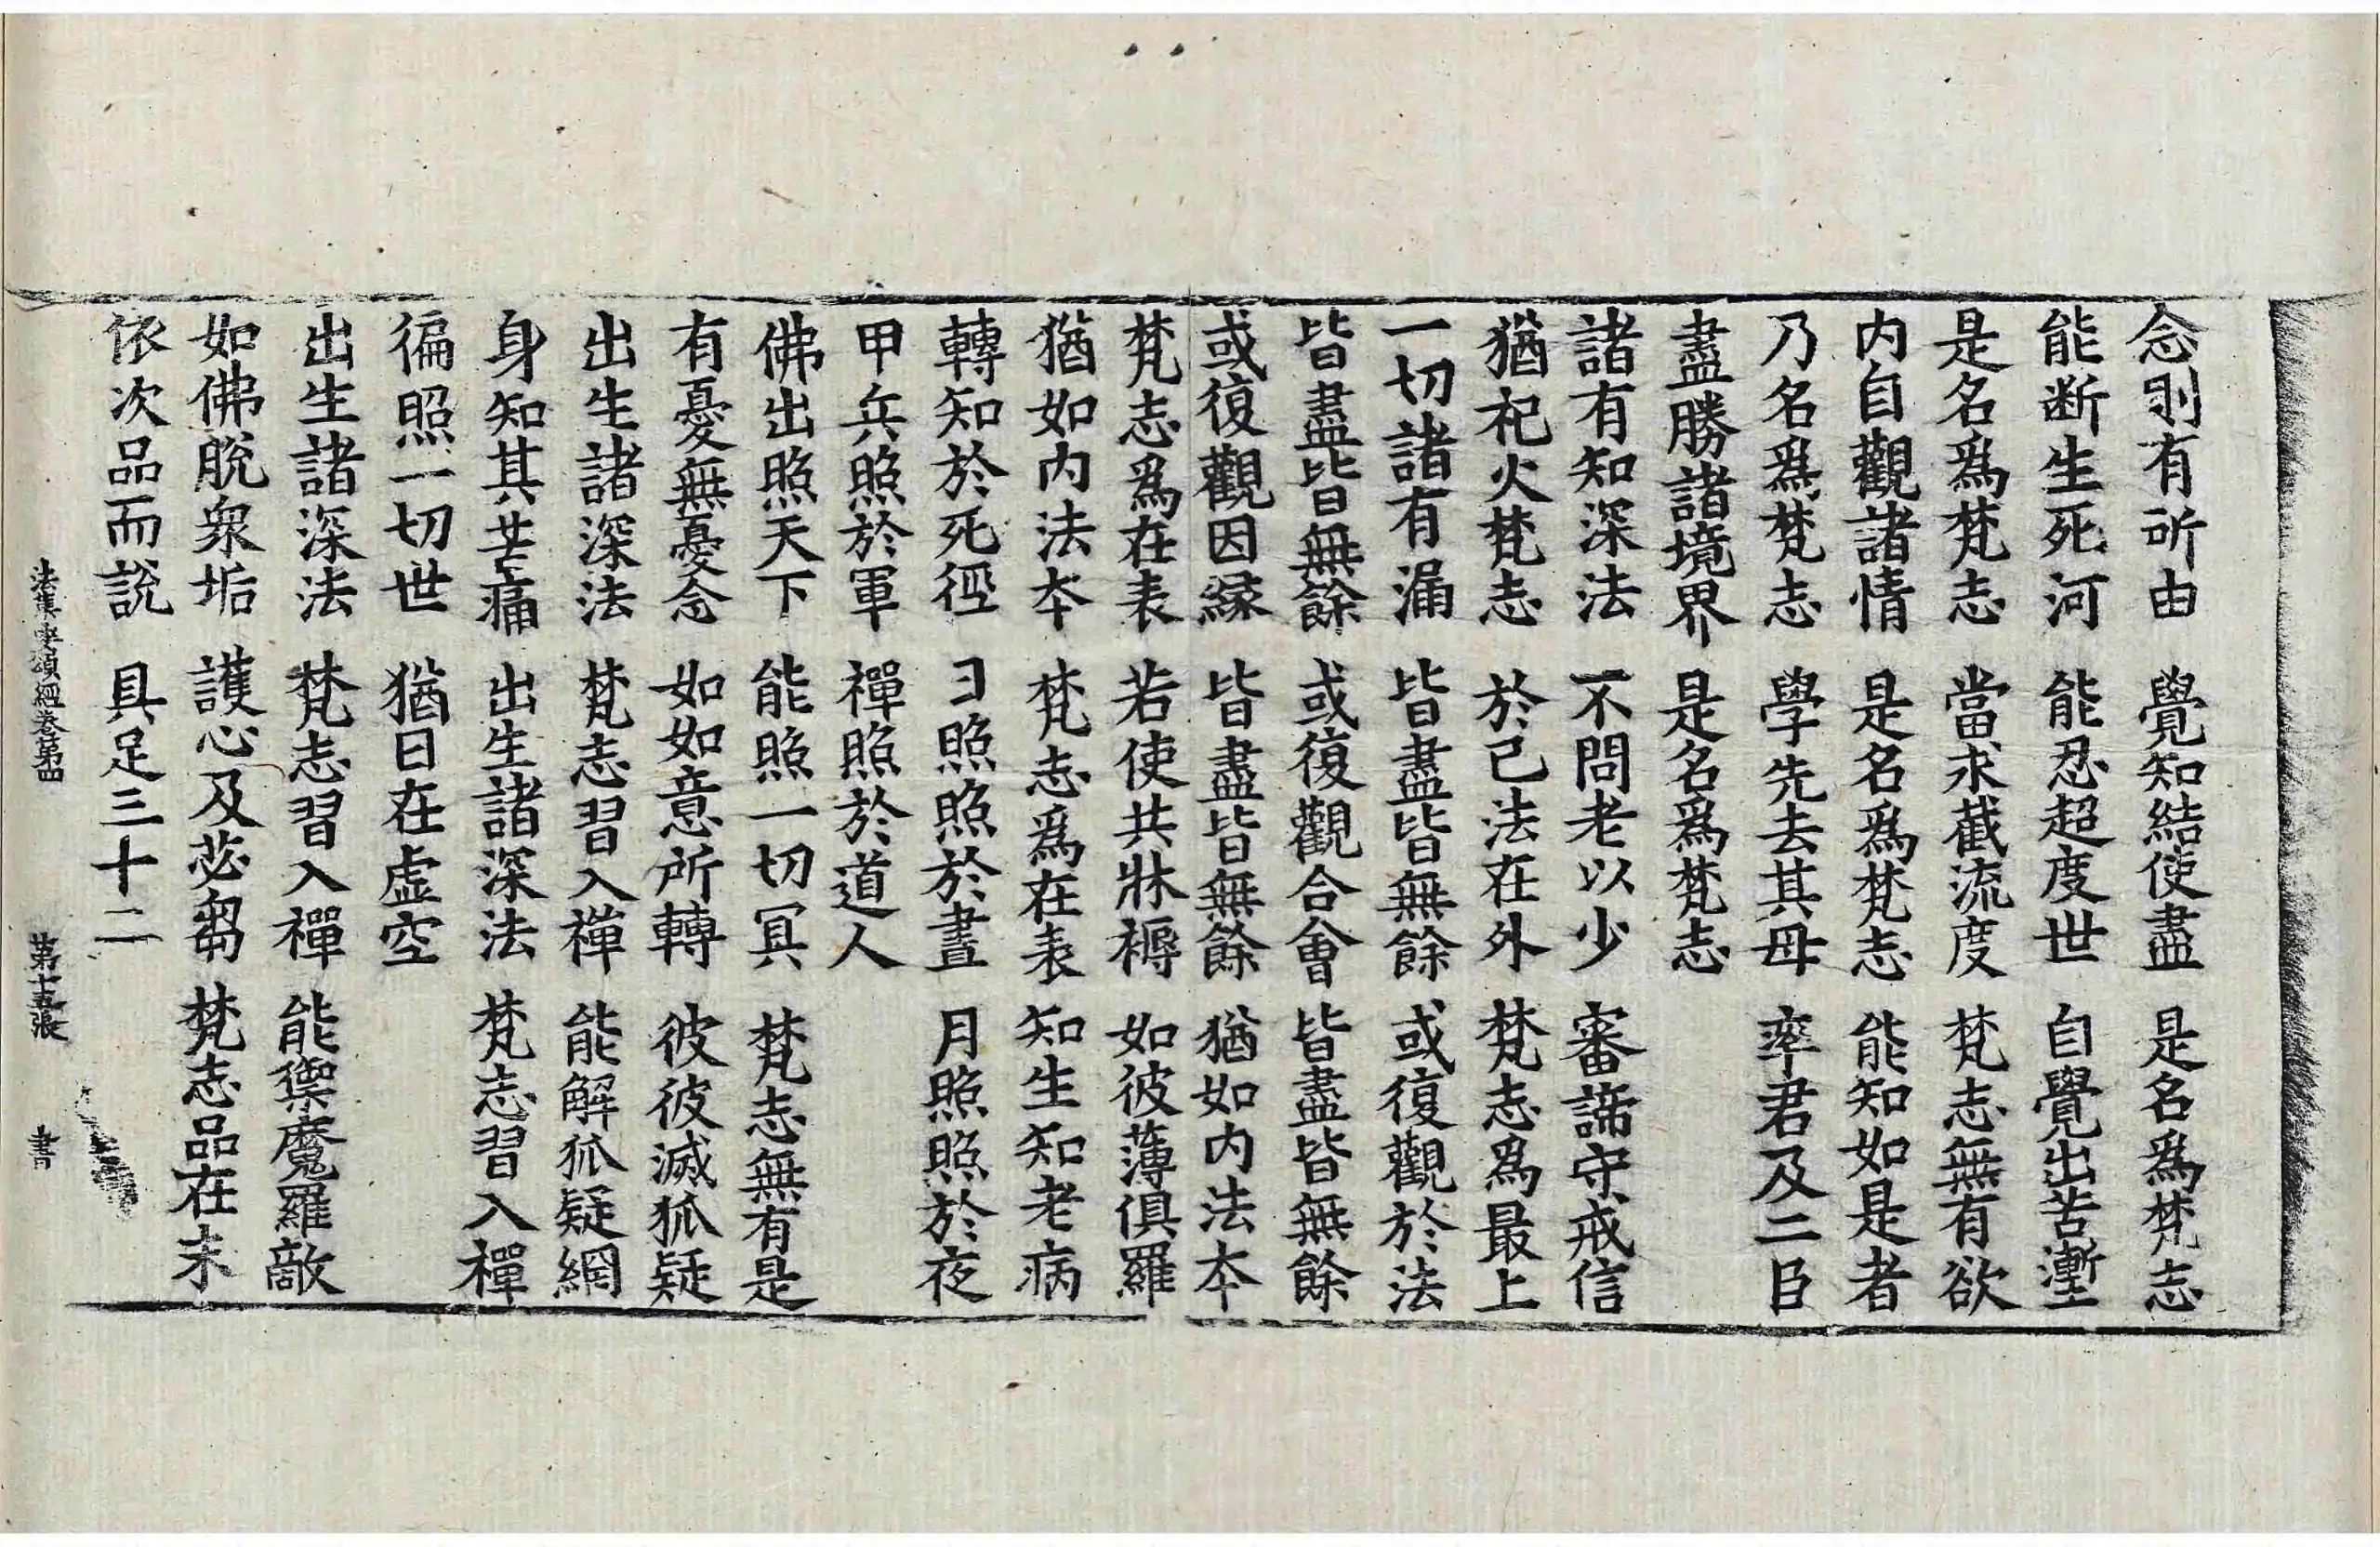 念則有所由　覺知結使盡　是名爲梵志
能断生死河　能忍超度世　自覺出苦壍
是名爲梵志　當求截流度　梵志無有欲
内自觀諸情　是名爲梵志　能知如是者
乃名爲梵志　學先去其母　率君及二臣
盡勝諸境界　是名爲梵志
諸有知深法　不問老以少　審諦守戒信
猶祀火梵志　於己法在外　梵志爲最上
一切諸有漏　皆盡皆無餘　或復觀於法
皆盡皆無餘　或復觀合會　皆盡皆無餘
或復觀因縁　皆盡皆無餘　猶如内法本
梵志爲在表　若使共牀褥　如彼薄俱羅
猶如内法本　梵志爲在表　知生知老病
轉知於死徑　日照照於晝　月照照於夜
甲兵照於軍　禪照於道人
佛出照天下　能照一切冥　梵志無有是
有憂無憂念　如如意所轉　彼彼滅狐疑
出生諸深法　梵志習入禪　能解狐疑網
身知其苦痛　出生諸深法　梵志習入禪
徧照一切世　猶日在虛空
出生諸深法　梵志習入禪　能禦魔羅敵
如佛脫衆垢　護心及苾芻　梵志品在末
依次品而說　具足三十二
法集要頌經卷第四　第十五張　書